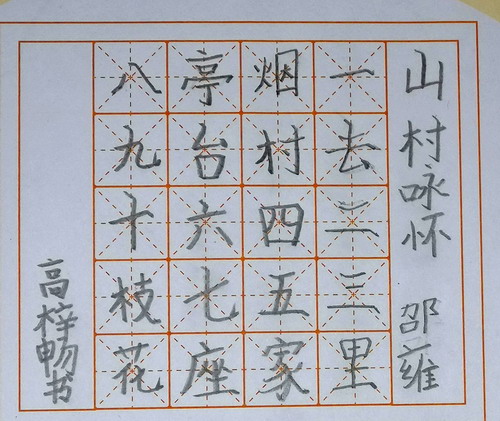 山村咏怀 邵雍
一去二三里
烟村四五家
亭台六七座
八九十枝花
高梓畅书